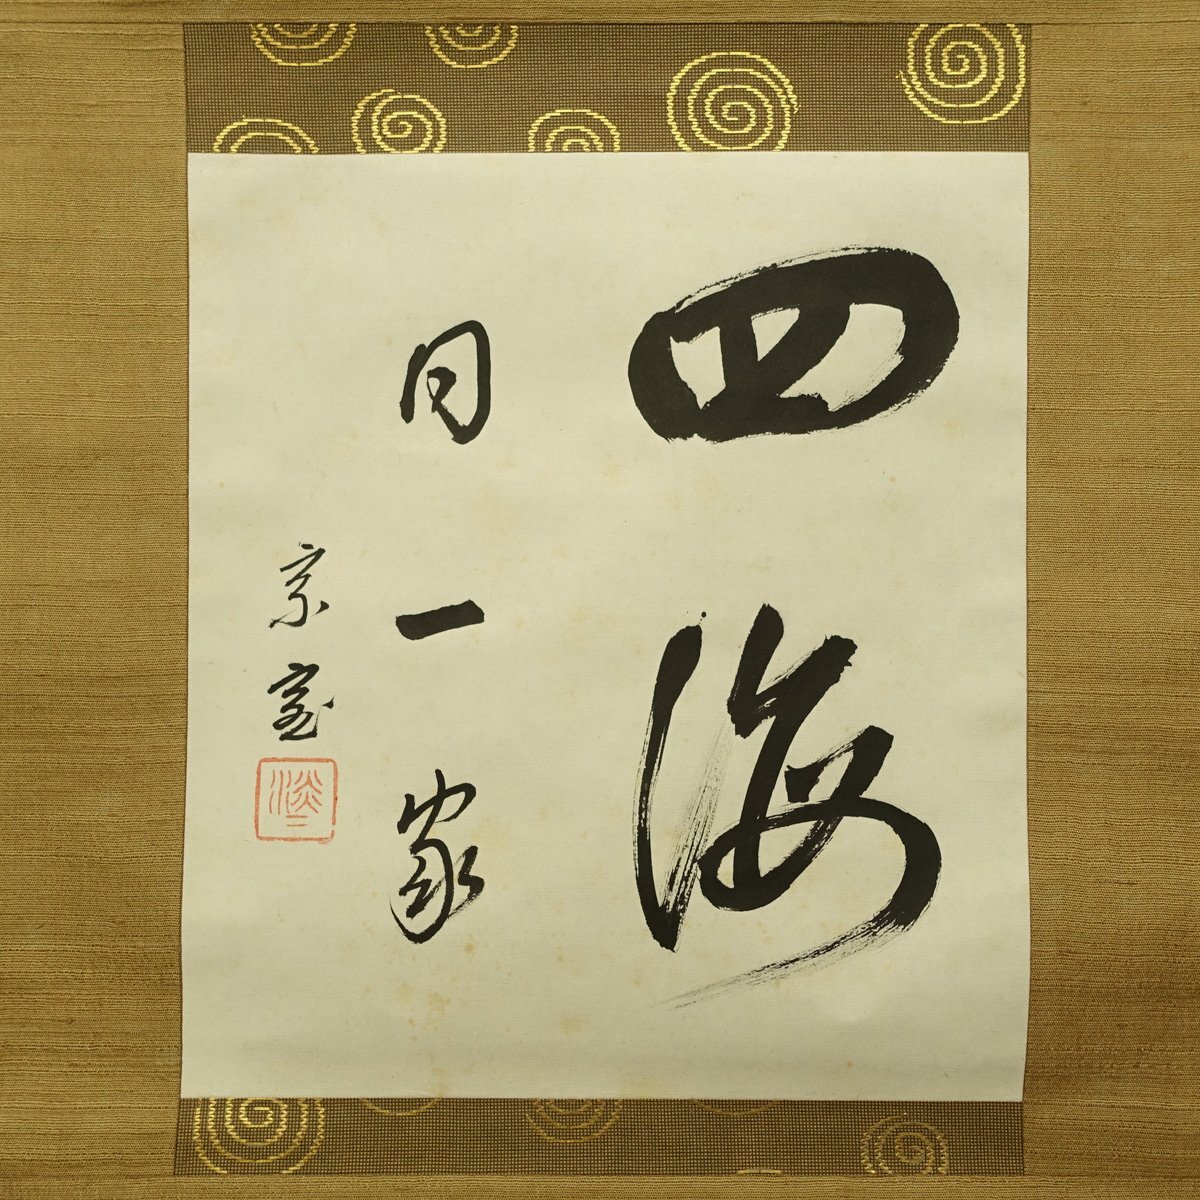 四海
同一家
宗室